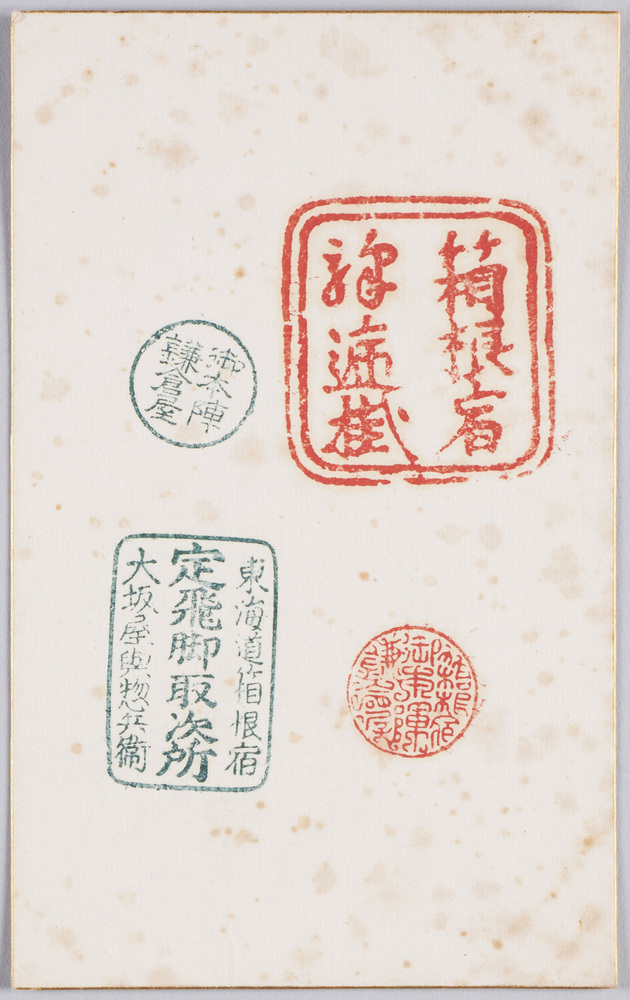 箱根宿
驛逓掛
御本陣
鎌倉屋
東海道箱根宿
定飛脚取次所
大坂屋與惣兵衛
箱根宿
御本陣
鎌倉屋